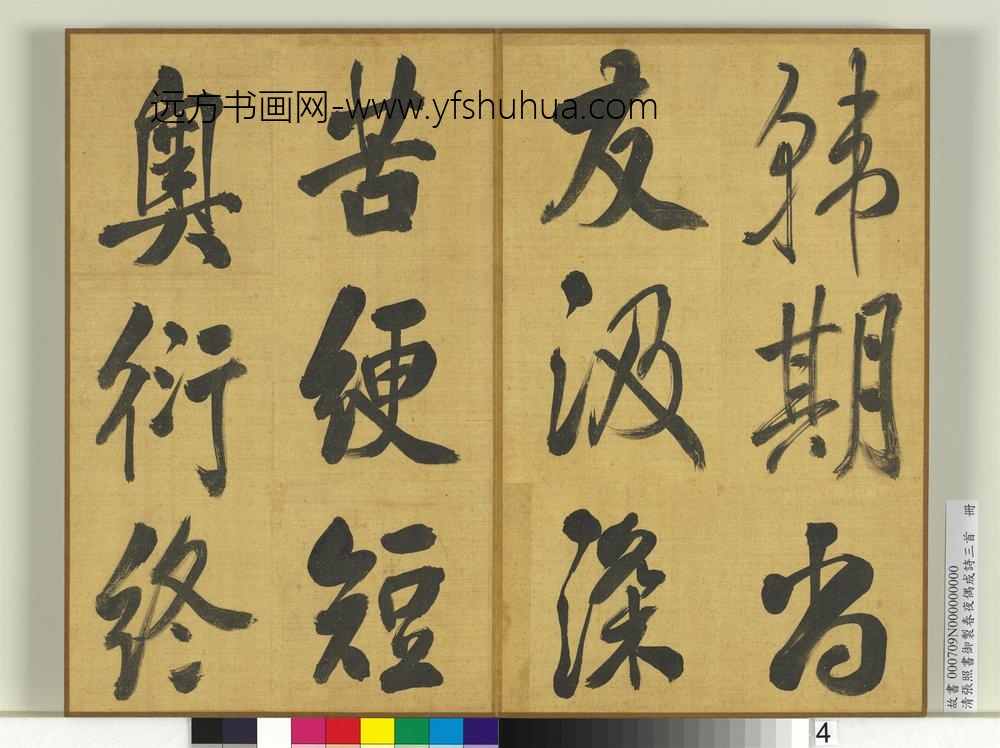 韓期尚
友汲深
苦綆短
奧衍終
远方书画网-www.yfshuhua.com
故書 000709N000000000
清張照書御製春夜偶成詩三首 冊
4